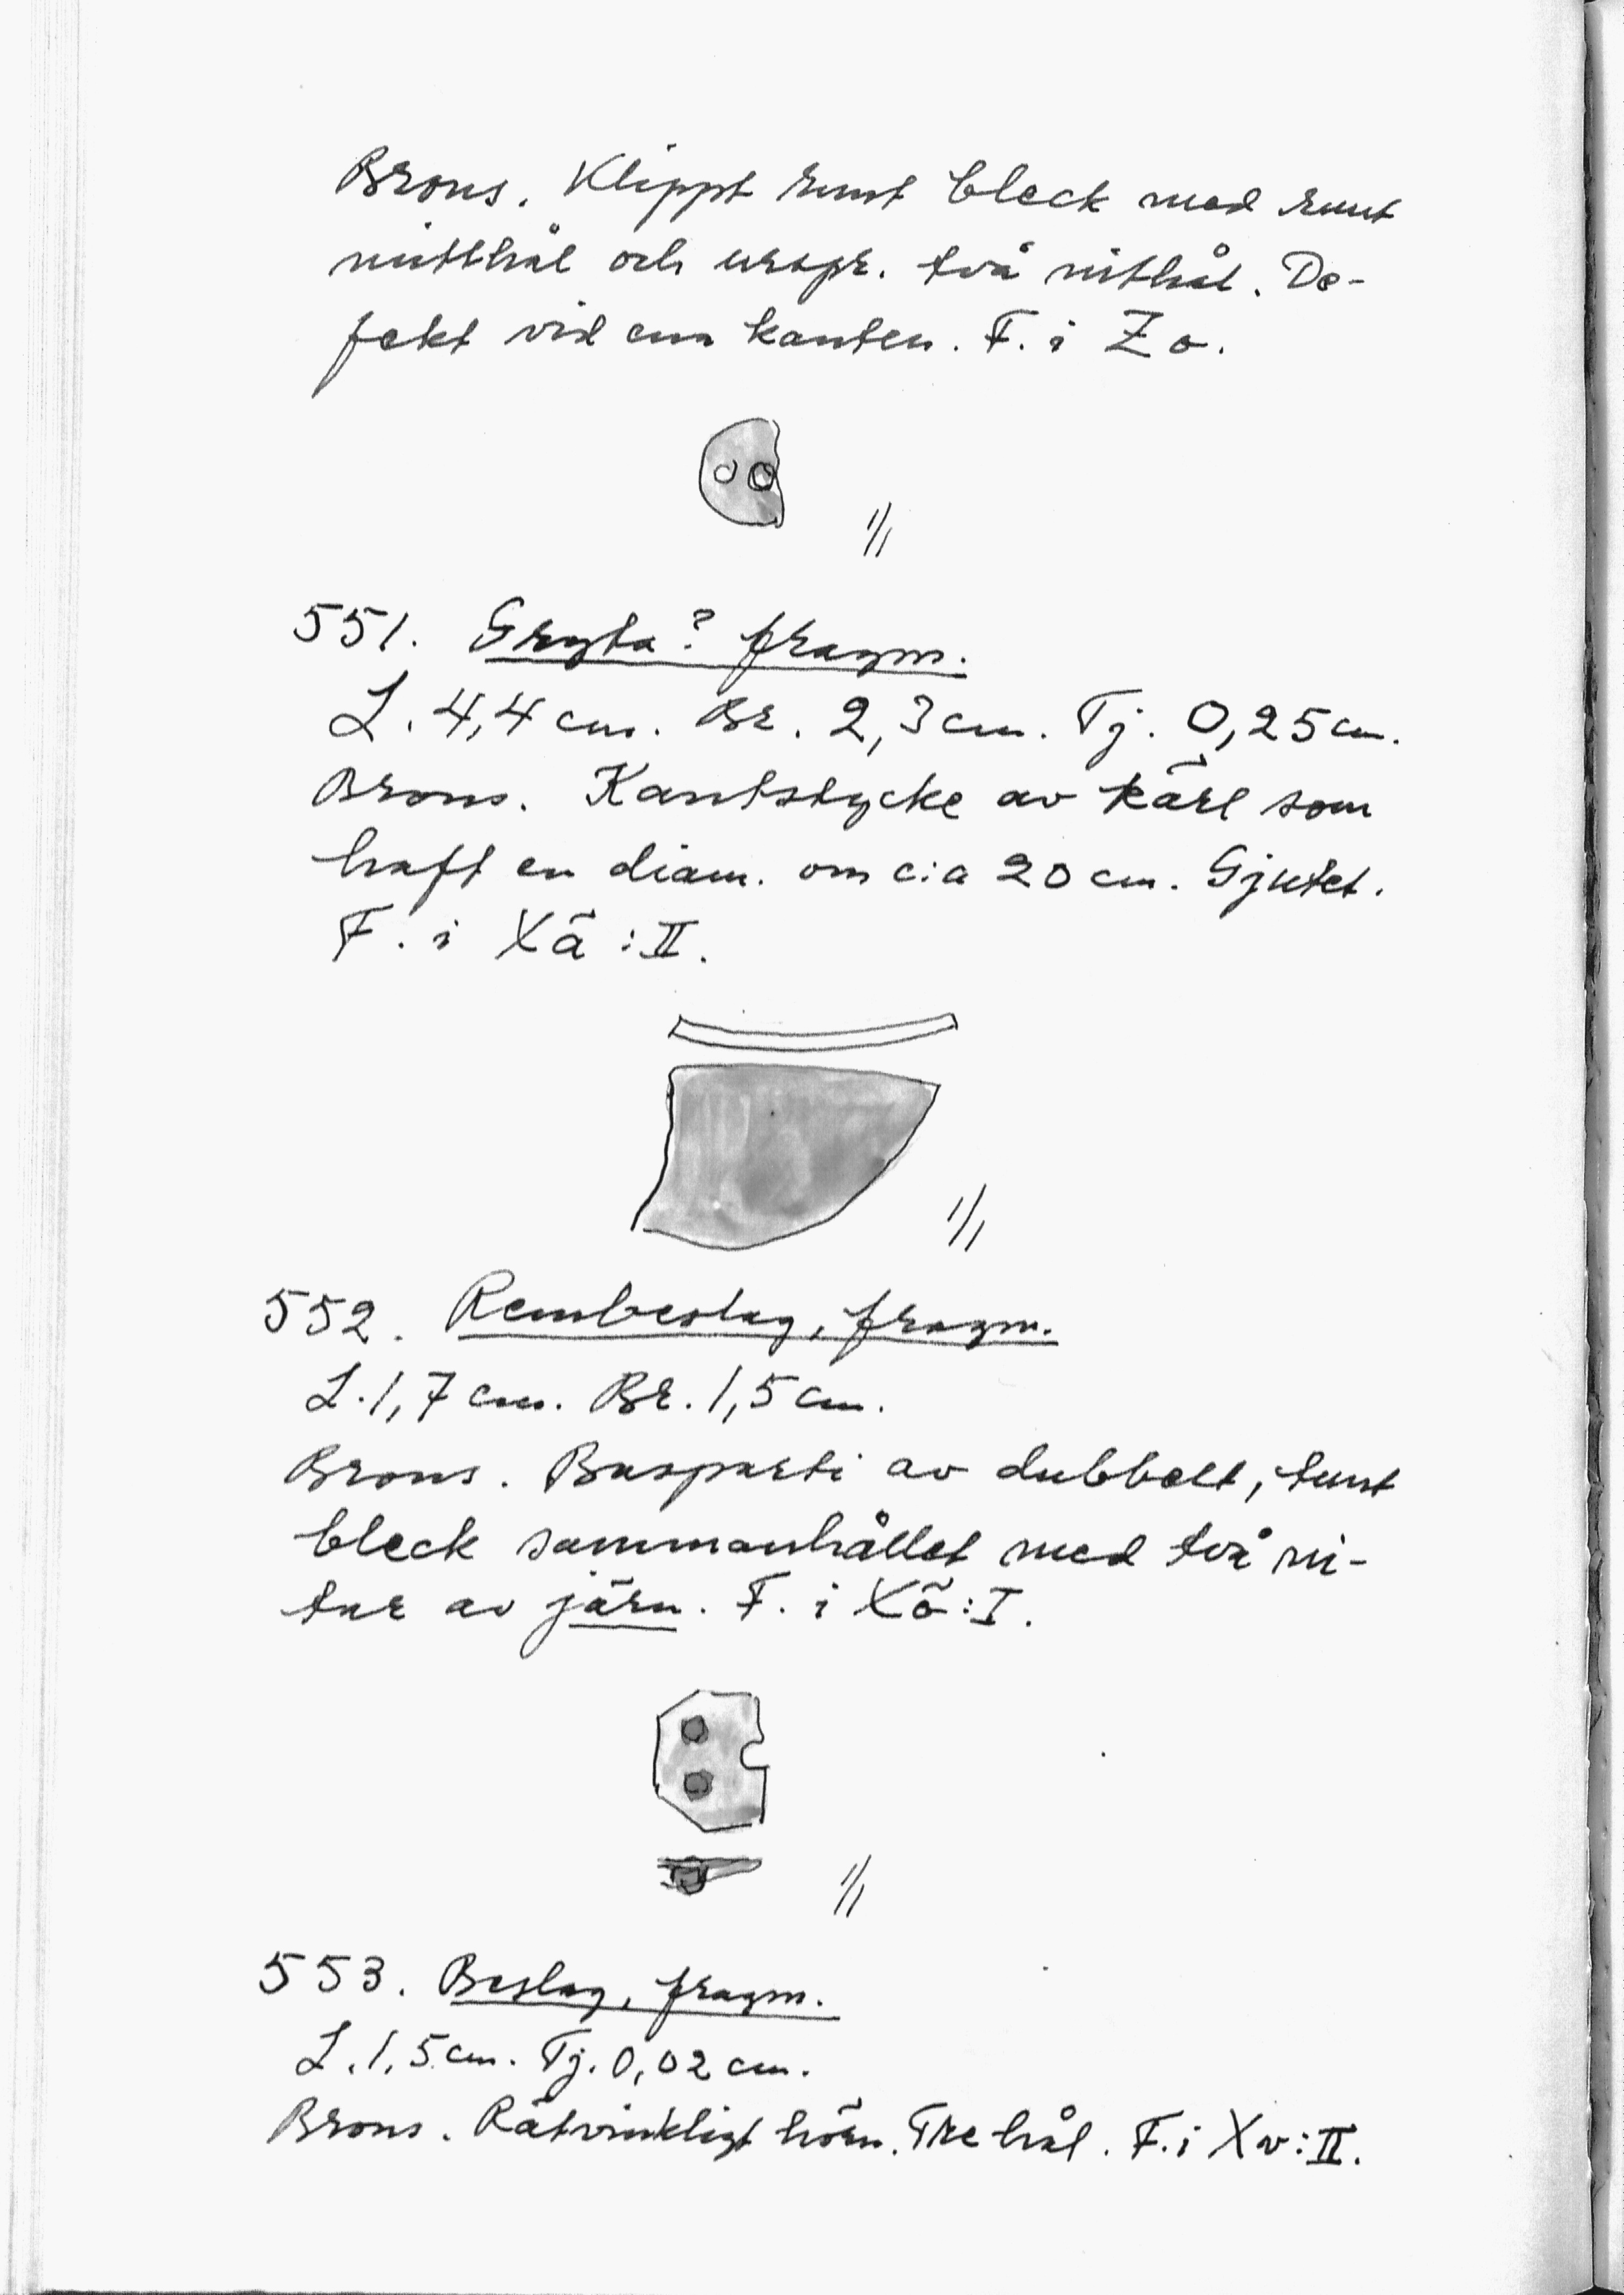 Brons. Klippt runt bleck med runt
mitthål och urspr. två nithål. De-
fekt vid ena kanten. F. i Zo.
1/1
551. Gryta? fragm.
L. 4,4 cm. Br. 2,3 cm. Tj. 0,25 cm.
Brons. Kantstycke av kärl som
haft en diam. om c:a 20 cm. Gjutet.
F. i Xä:II.
1/1
552. Rembeslag, fragm.
L. 1,7 cm. Br. 1,5 cm.
Brons. Basparti av dubbelt, tunt
bleck sammanhållet med två ni-
tar av järn. F. i Xö:I.
1/1
553. Beslag, fragm.
L. 1,5 cm. Tj. 0,02 cm.
Brons. Rätvinkligt hörn. Tre hål. F. i Xv:II.